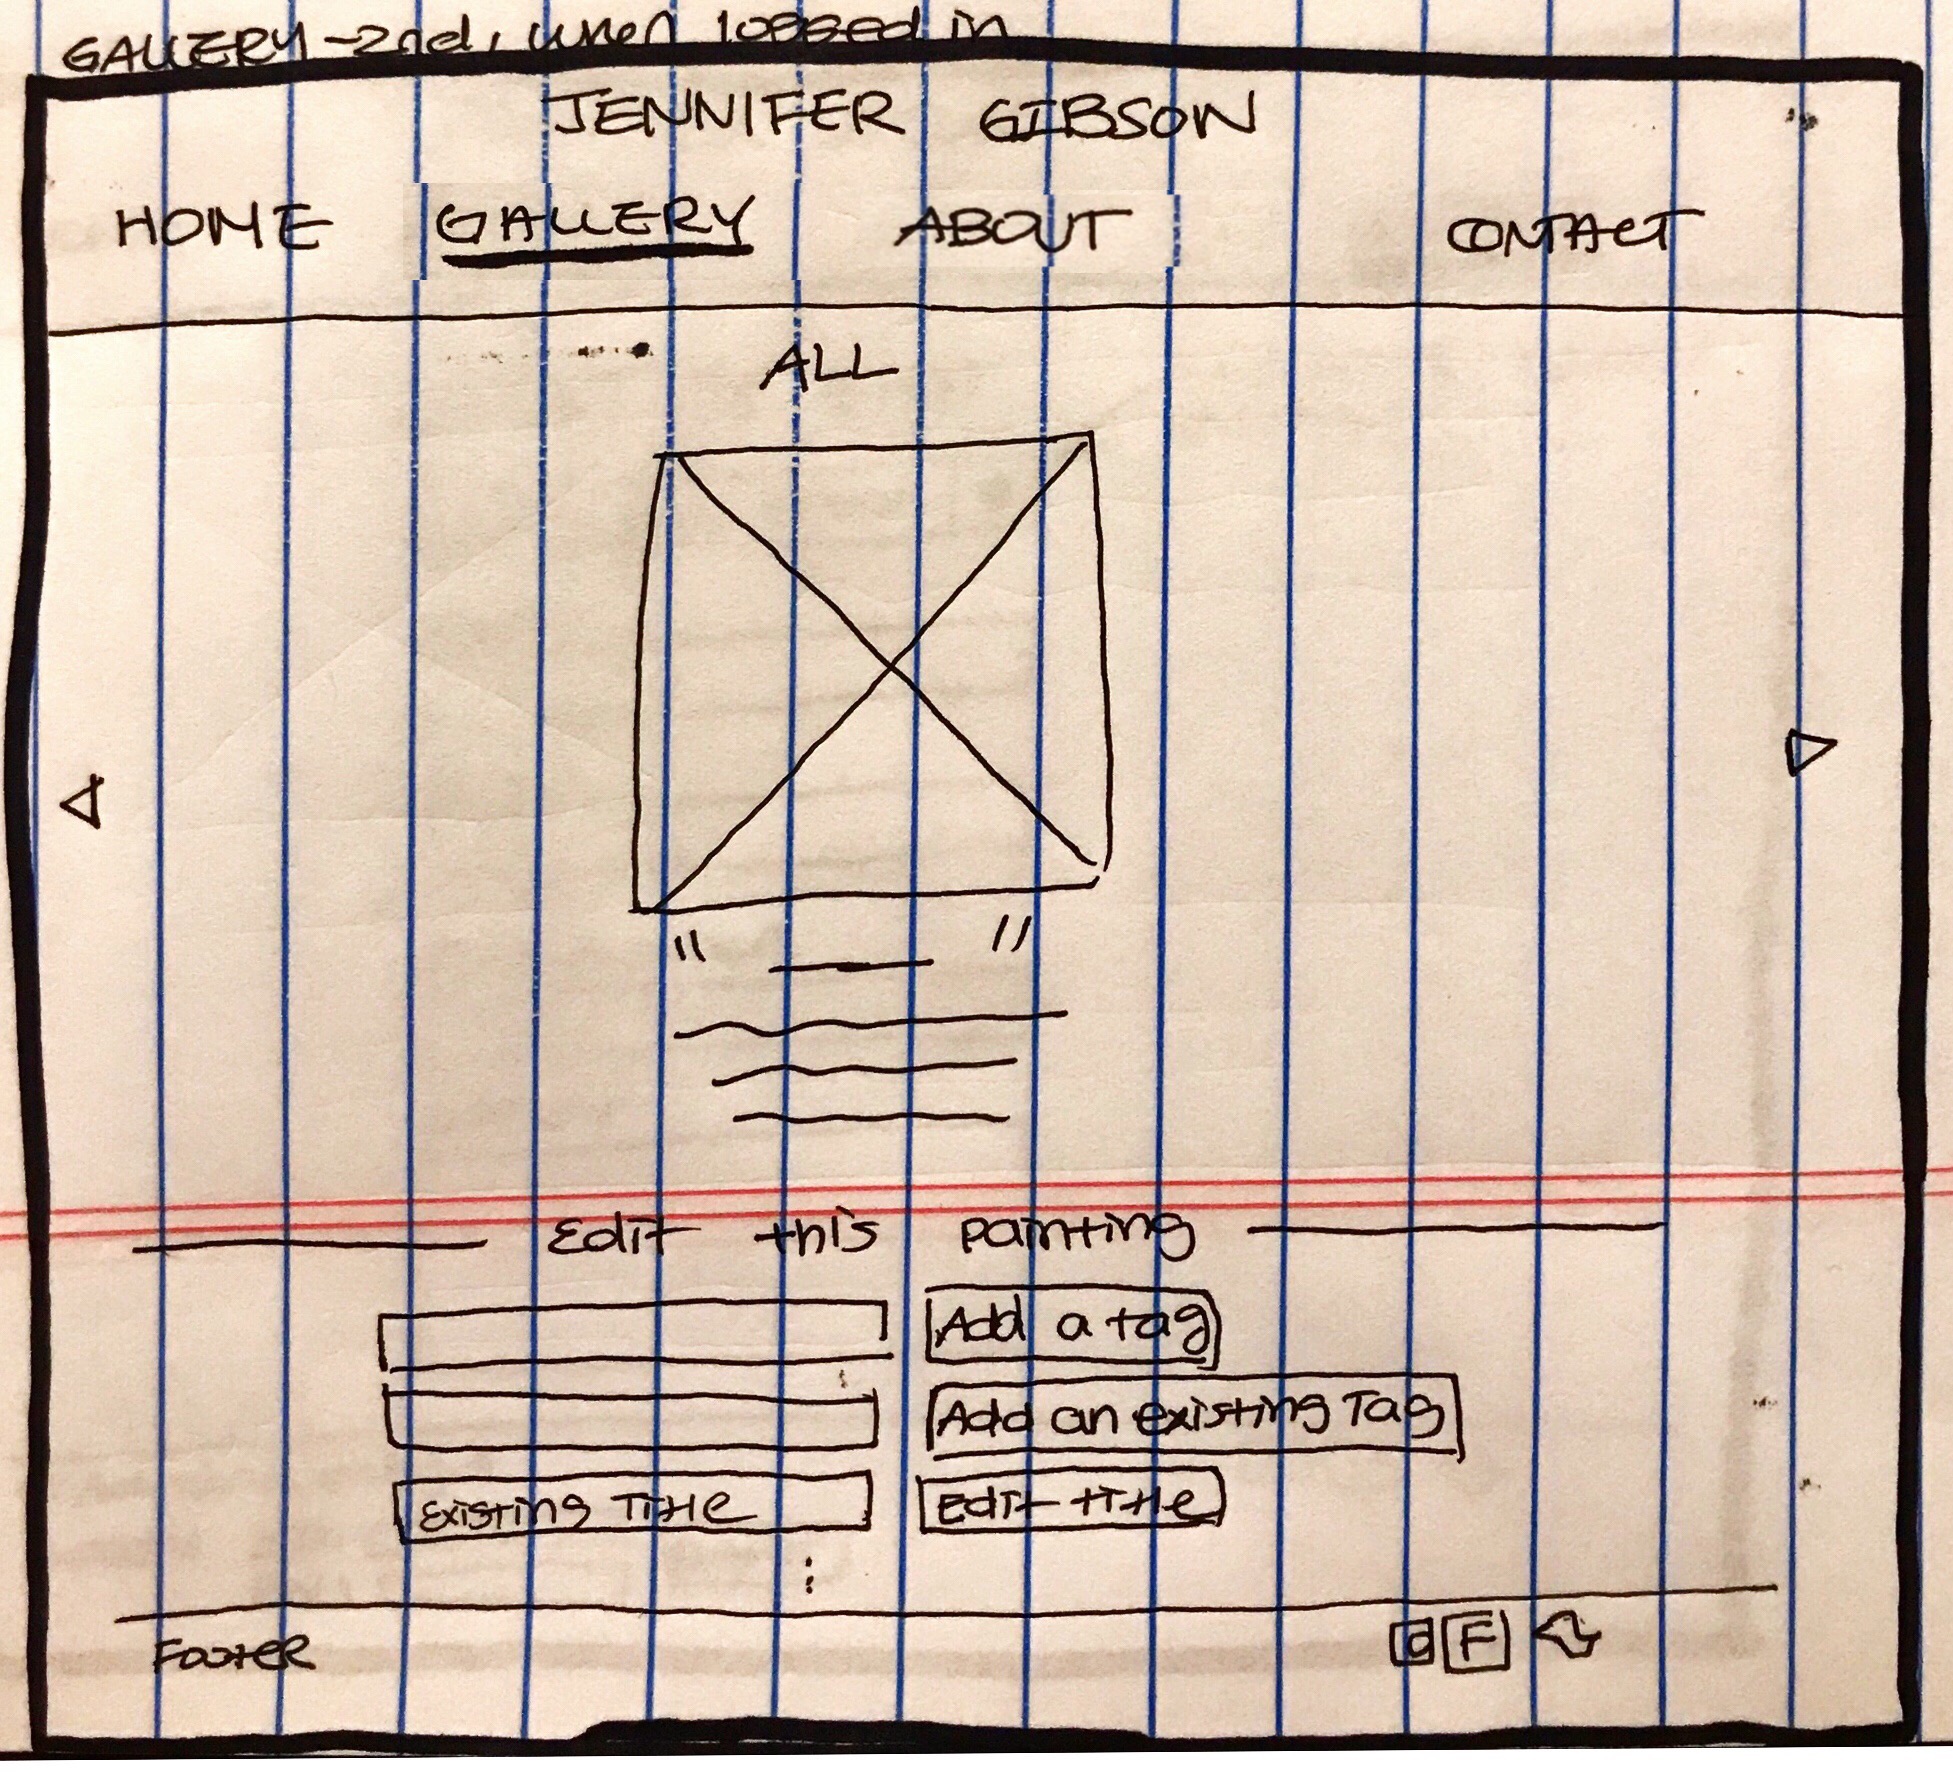 GALLERY - 2nd, when logged in
JENNIFER GIBSON
HOME GALLERY ABOUT CONTACT
ALL
" "
Edit this painting
Add a tag
Add an existing Tag
Existing Title Edit title
:
Footer F